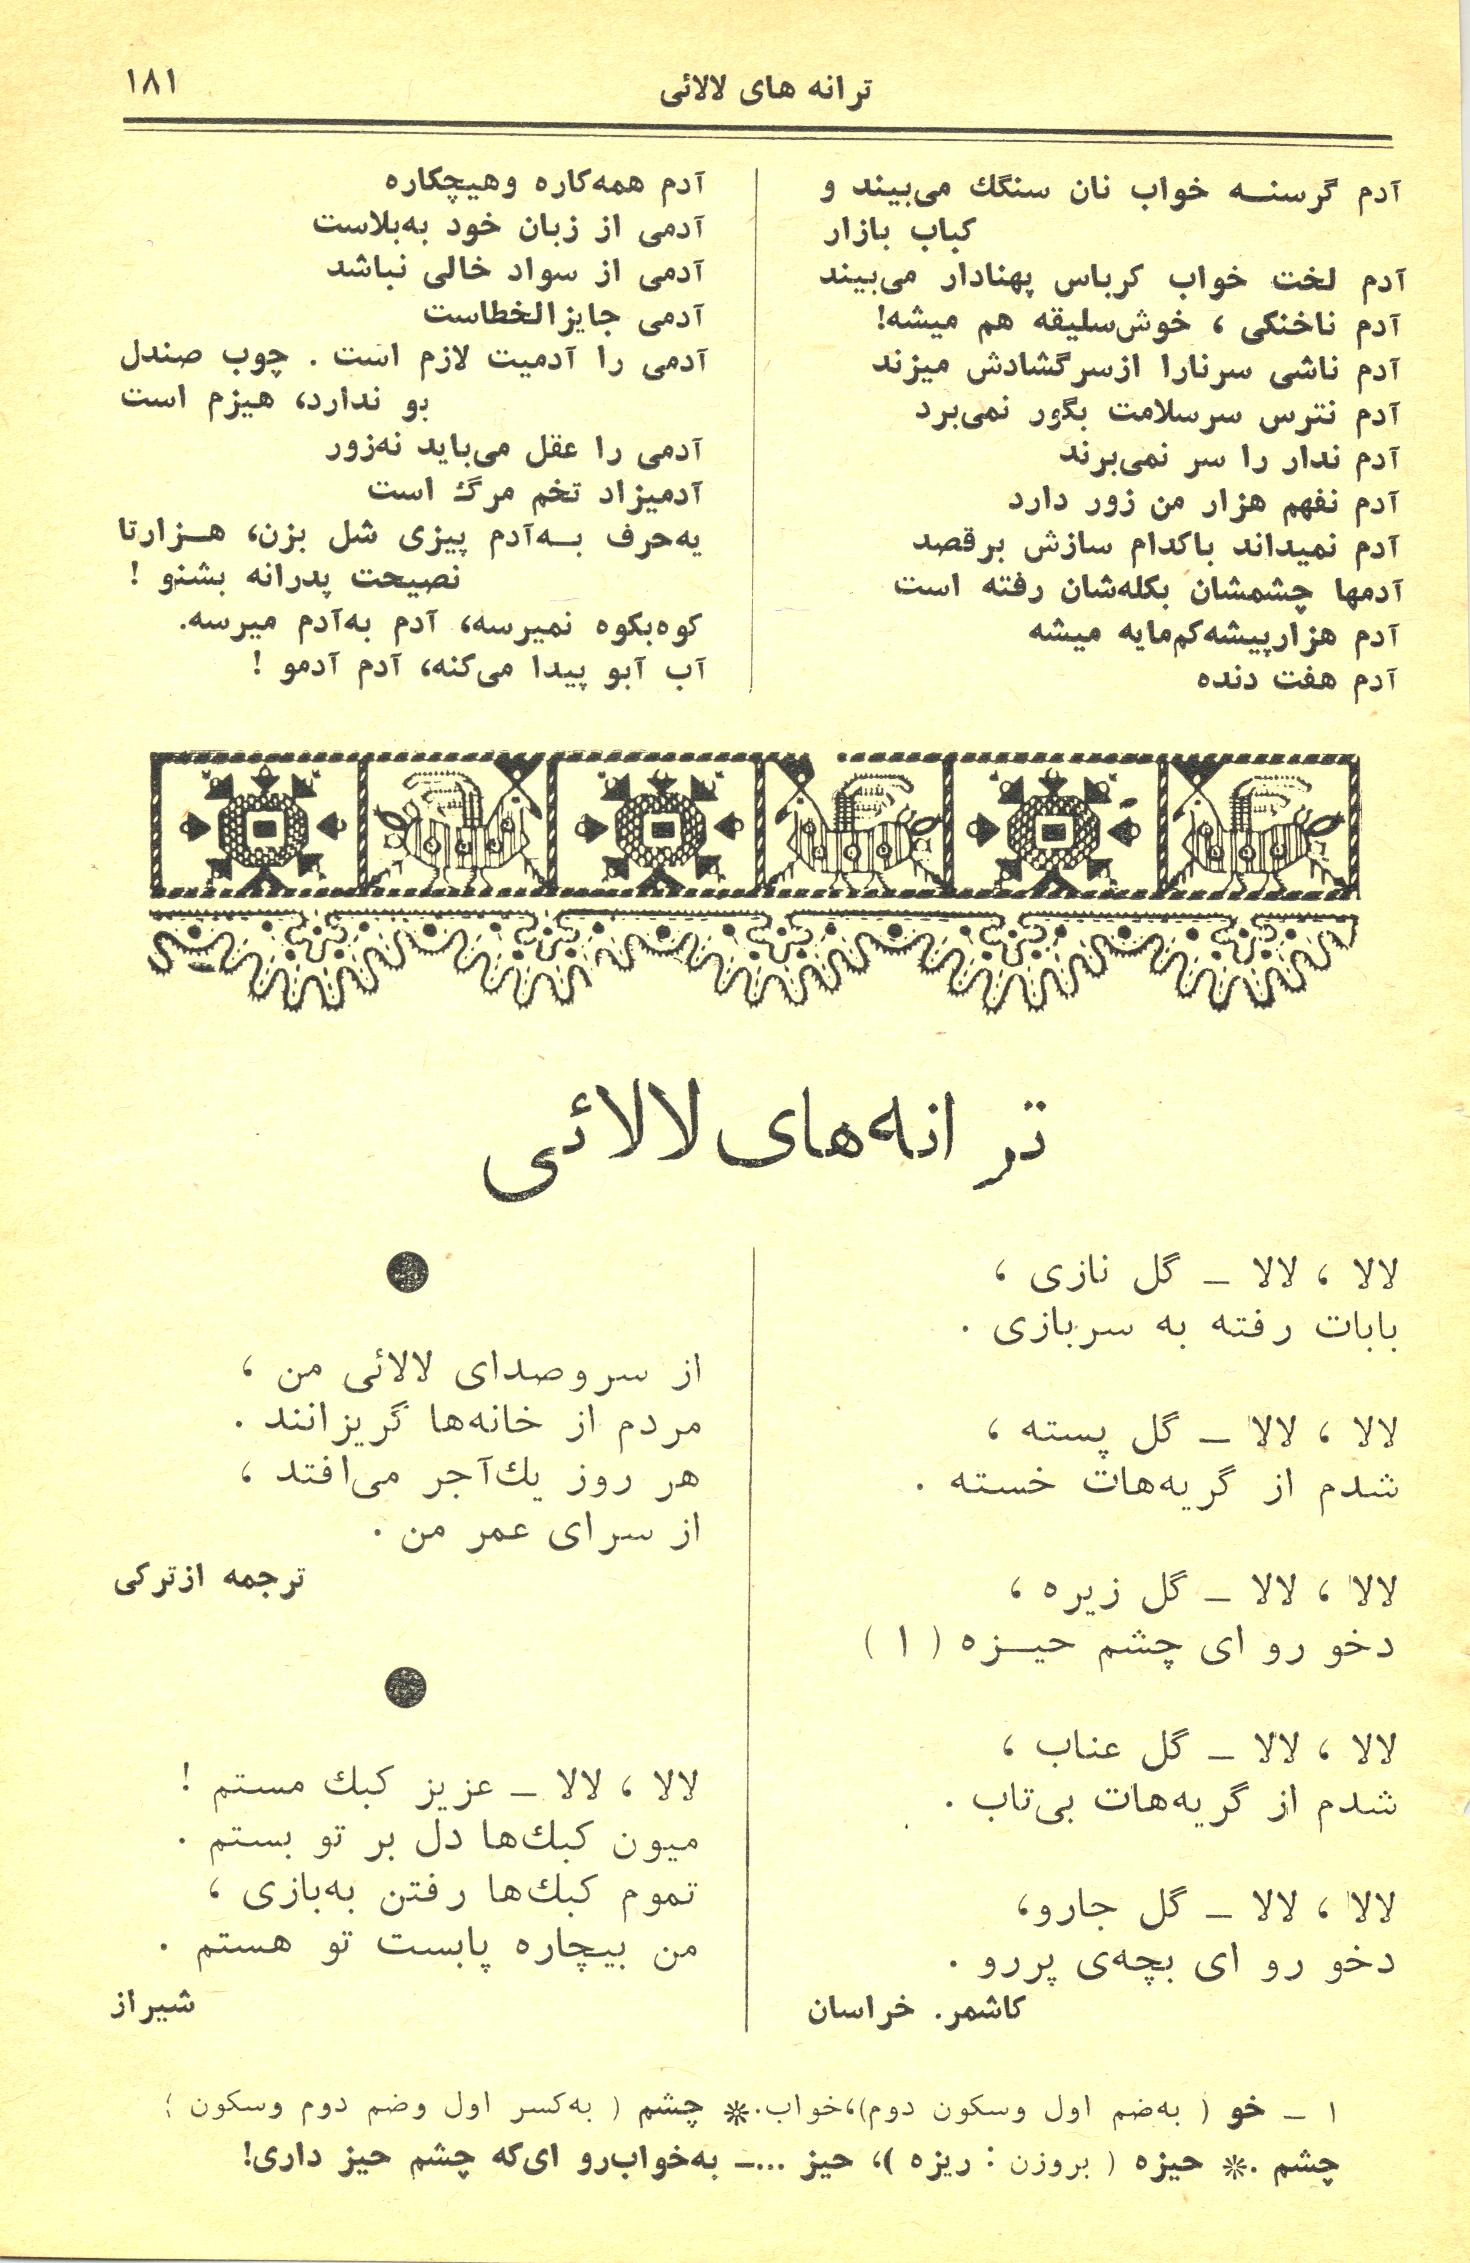 ترانه های لالائی
۱۸۱
آدم گرسنـــه خواب نان سنگك می‌بیند و
کباب بازار
آدم لخت خواب کرباس پهنادار می‌بیند
آدم ناخنکی ، خوش‌سلیقه هم میشه!
آدم ناشی سرنارا ازسرگشادش میزند
آدم نترس سرسلامت بگور نمی‌برد
آدم ندار را سر نمی‌برند
آدم نفهم هزار من زور دارد
آدم نمیداند باکدام سازش برقصد
آدمها چشمشان بکله‌شان رفته است
آدم هزارپیشه‌کم‌مایه میشه
آدم هفت دنده
آدم همه‌کاره وهیچکاره
آدمی از زبان خود به‌بلاست
آدمی از سواد خالی نباشد
آدمی جایزالخطاست
آدمی را آدمیت لازم است . چوب صندل
بو ندارد، هیزم است
آدمی را عقل می‌باید نه‌زور
آدمیزاد تخم مرگ است
یه‌حرف بـه‌آدم پیزی شل بزن، هـزارتا
نصیحت پدرانه بشنو !
کوه‌بکوه نمیرسه، آدم به‌آدم میرسه.
آب آبو پیدا می‌کنه، آدم آدمو !
ترانه‌های لالائی
لالا ، لالا ــ گل نازی ،
بابات رفته به سربازی .
لالا ، لالا ــ گل پسته ،
شدم از گریه‌هات خسته .
لالا ، لالا ــ گل زیره ،
دخو رو ای چشم حیـــزه ( ۱ )
لالا ، لالا ــ گل عناب ،
شدم از گریه‌هات بی‌تاب .
لالا ، لالا ــ گل جارو،
دخو رو ای بچه‌ی پررو .
کاشمر. خراسان
از سروصدای لالائی من ،
مردم از خانه‌ها گریزانند .
هر روز یك‌آجر می‌افتد ،
از سرای عمر من .
ترجمه ازترکی
لالا ، لالا ــ عزیز کبك مستم !
میون کبك‌ها دل بر تو بستم .
تموم کبك‌ها رفتن به‌بازی ،
من بیچاره پابست تو هستم .
شیراز
۱ ــ خو ( به‌ضم اول وسکون دوم)،خواب.※ چشم ( به‌کسر اول وضم دوم وسکون ؛
چشم .※ حیزه ( بروزن : ریزه )، حیز ...ــ به‌خواب‌رو ای‌که چشم حیز داری!